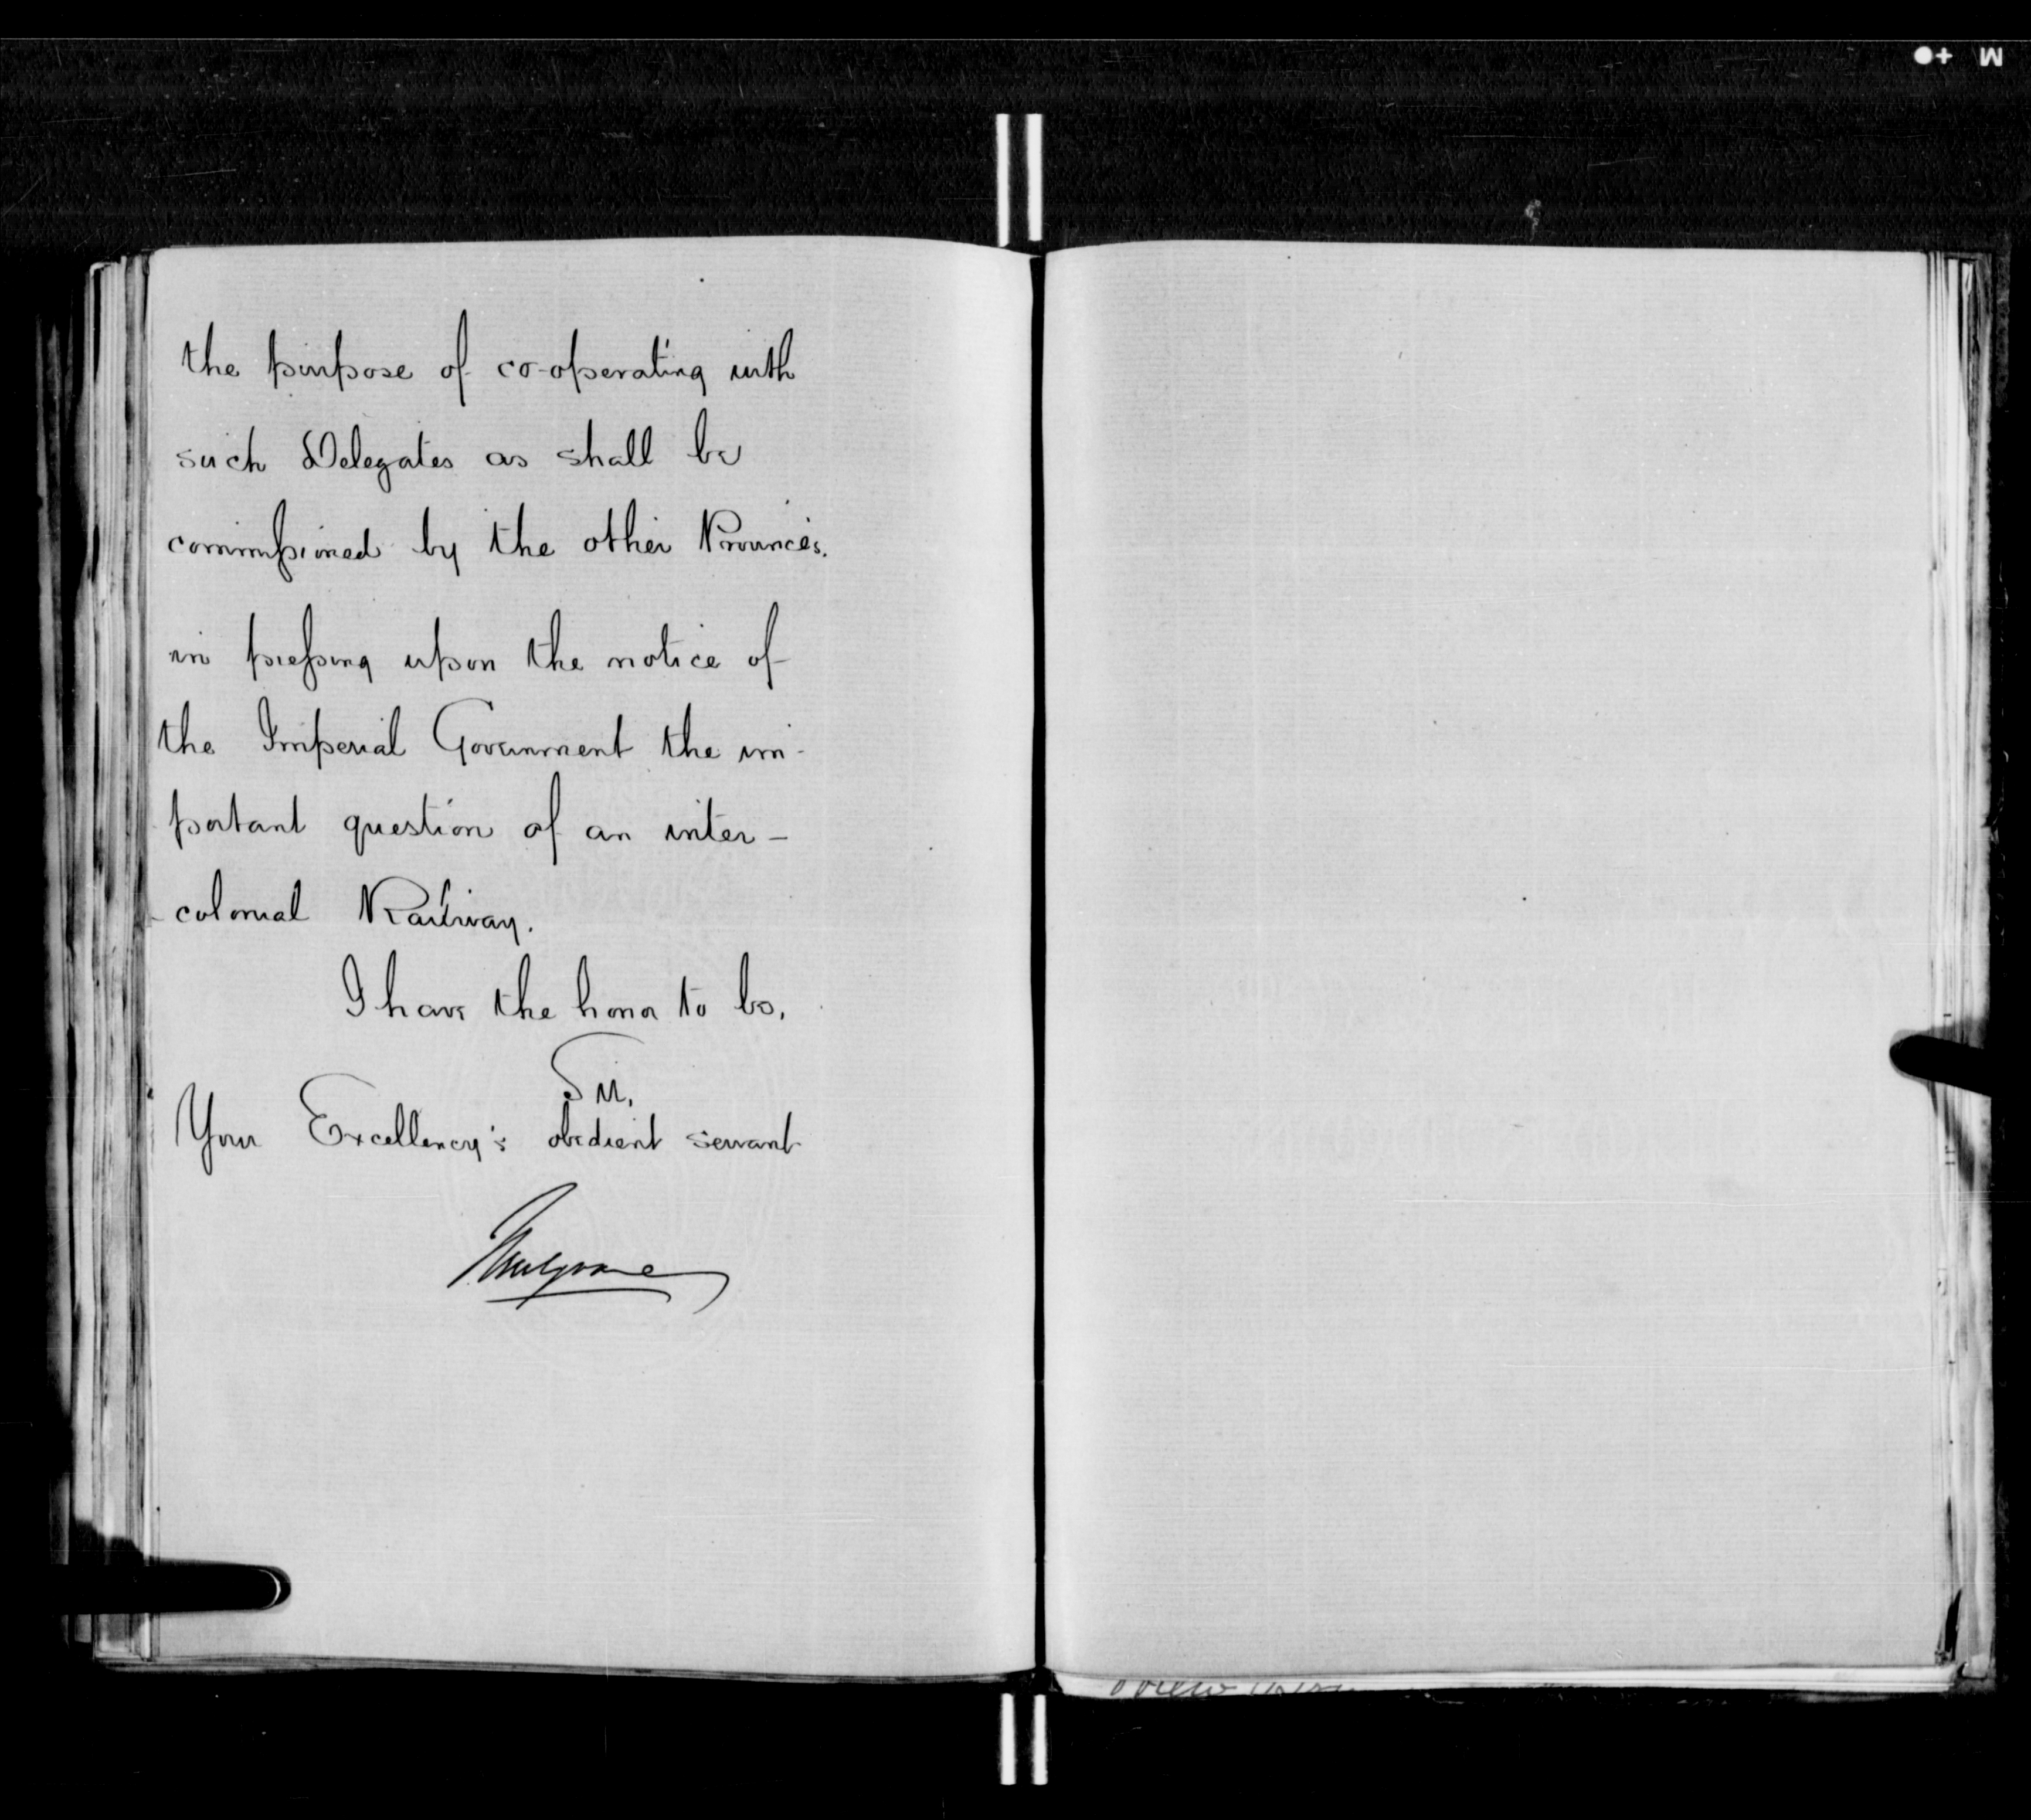 the purpose of co-operating with
such Delegates as shall be
commissioned by the other Provinces.
in pressing upon the notice of
the Imperial Government the im-
portant question of an inter-
-colonial Railway.
I have the honor to be,
Sir,
Your Excellency's obedient servant
Mulgrave